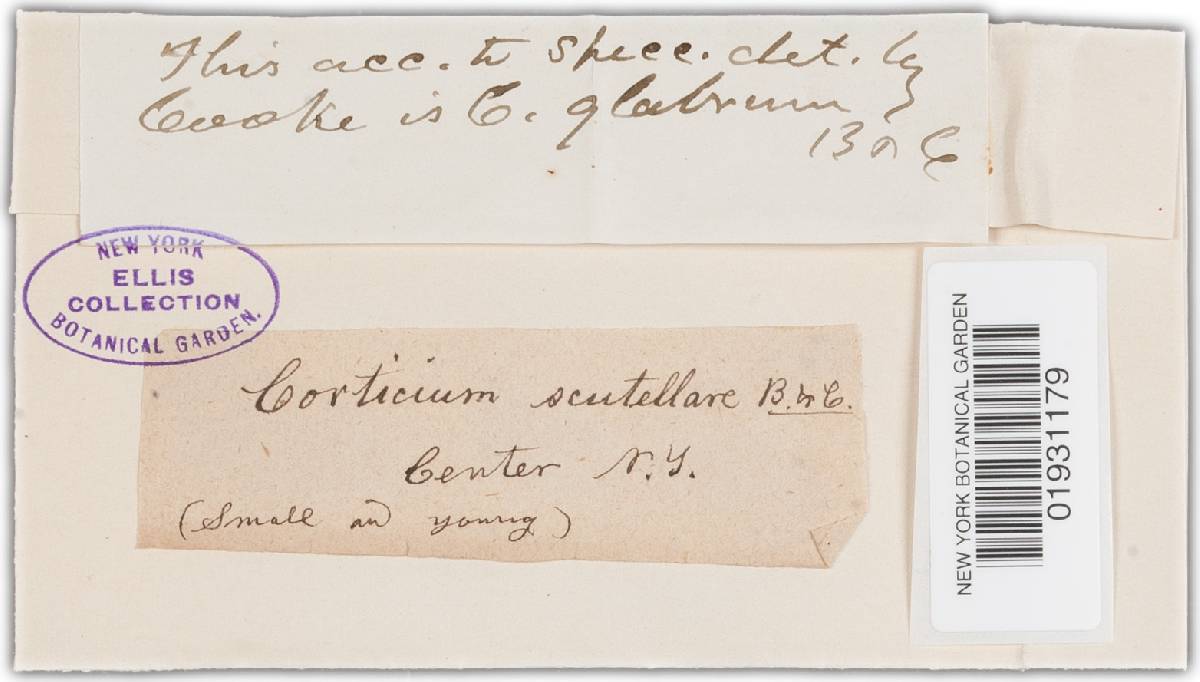 This acc. to specc. det. by
Cooke is C. glabrum
B & C
NEW YORK
ELLIS
COLLECTION
BOTANICAL GARDEN.
Corticium scutellare B. & C.
Center N.Y.
(Small and young)
NEW YORK BOTANICAL GARDEN
01931179